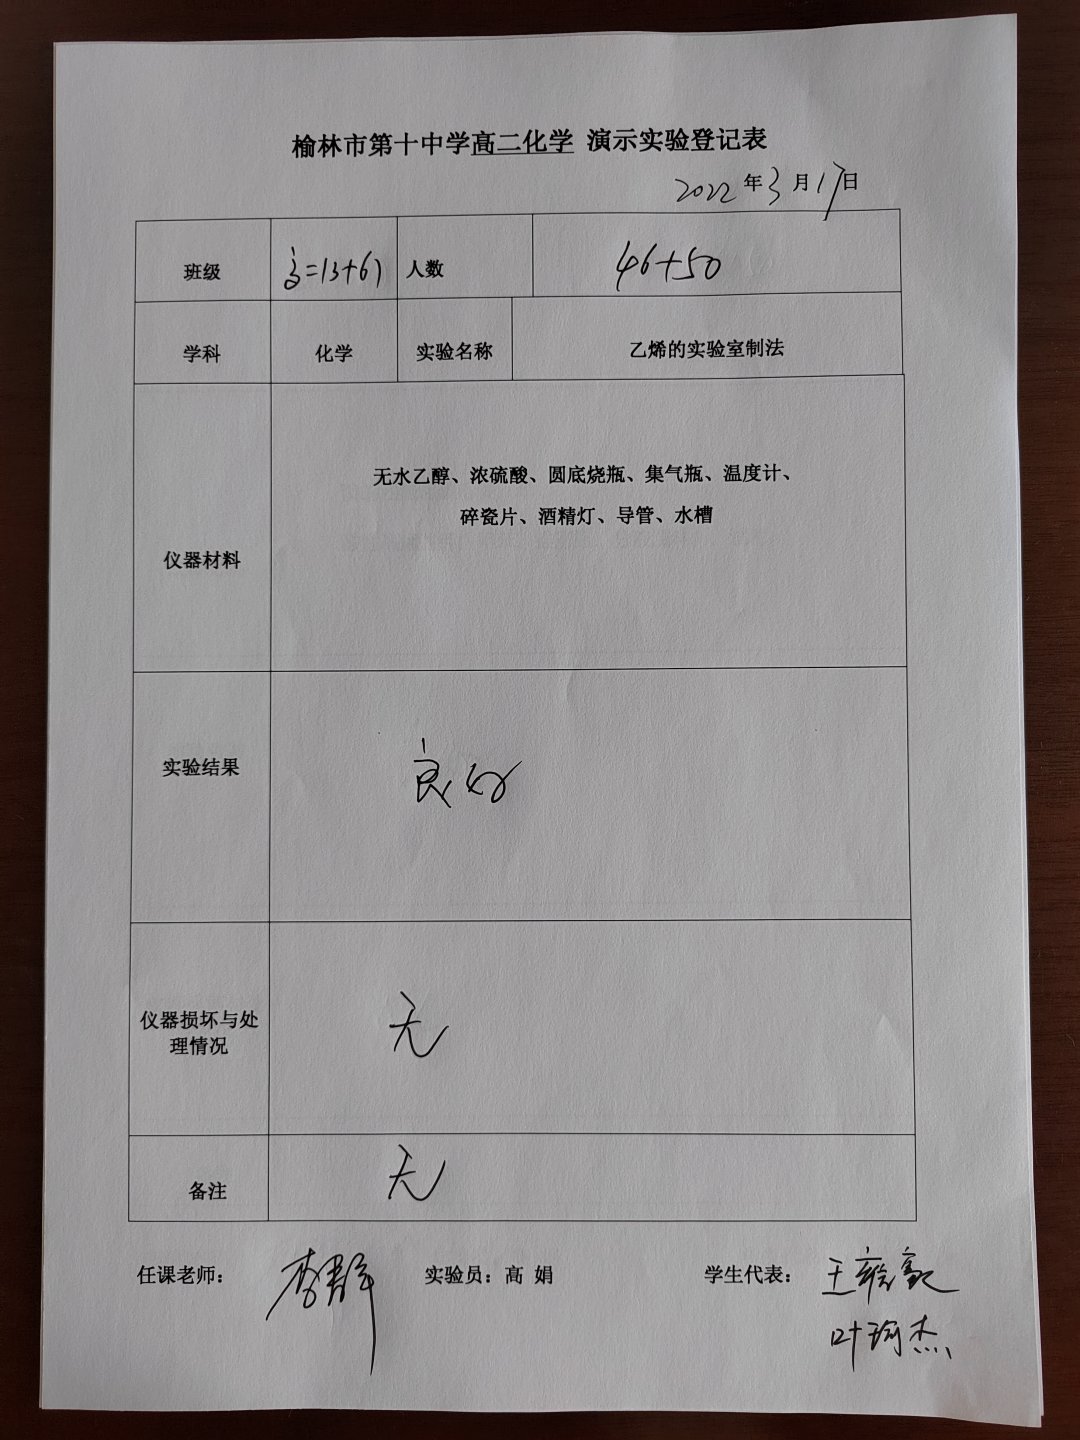 榆林市第十中学高二化学 演示实验登记表
2022年3月17日
班级 人数 46+50
学科 化学 实验名称 乙烯的实验室制法
仪器材料
无水乙醇、浓硫酸、圆底烧瓶、集气瓶、温度计、
碎瓷片、酒精灯、导管、水槽
实验结果 良好
仪器损坏与处
理情况
无
备注 无
任课老师： 实验员：高 娟 学生代表：